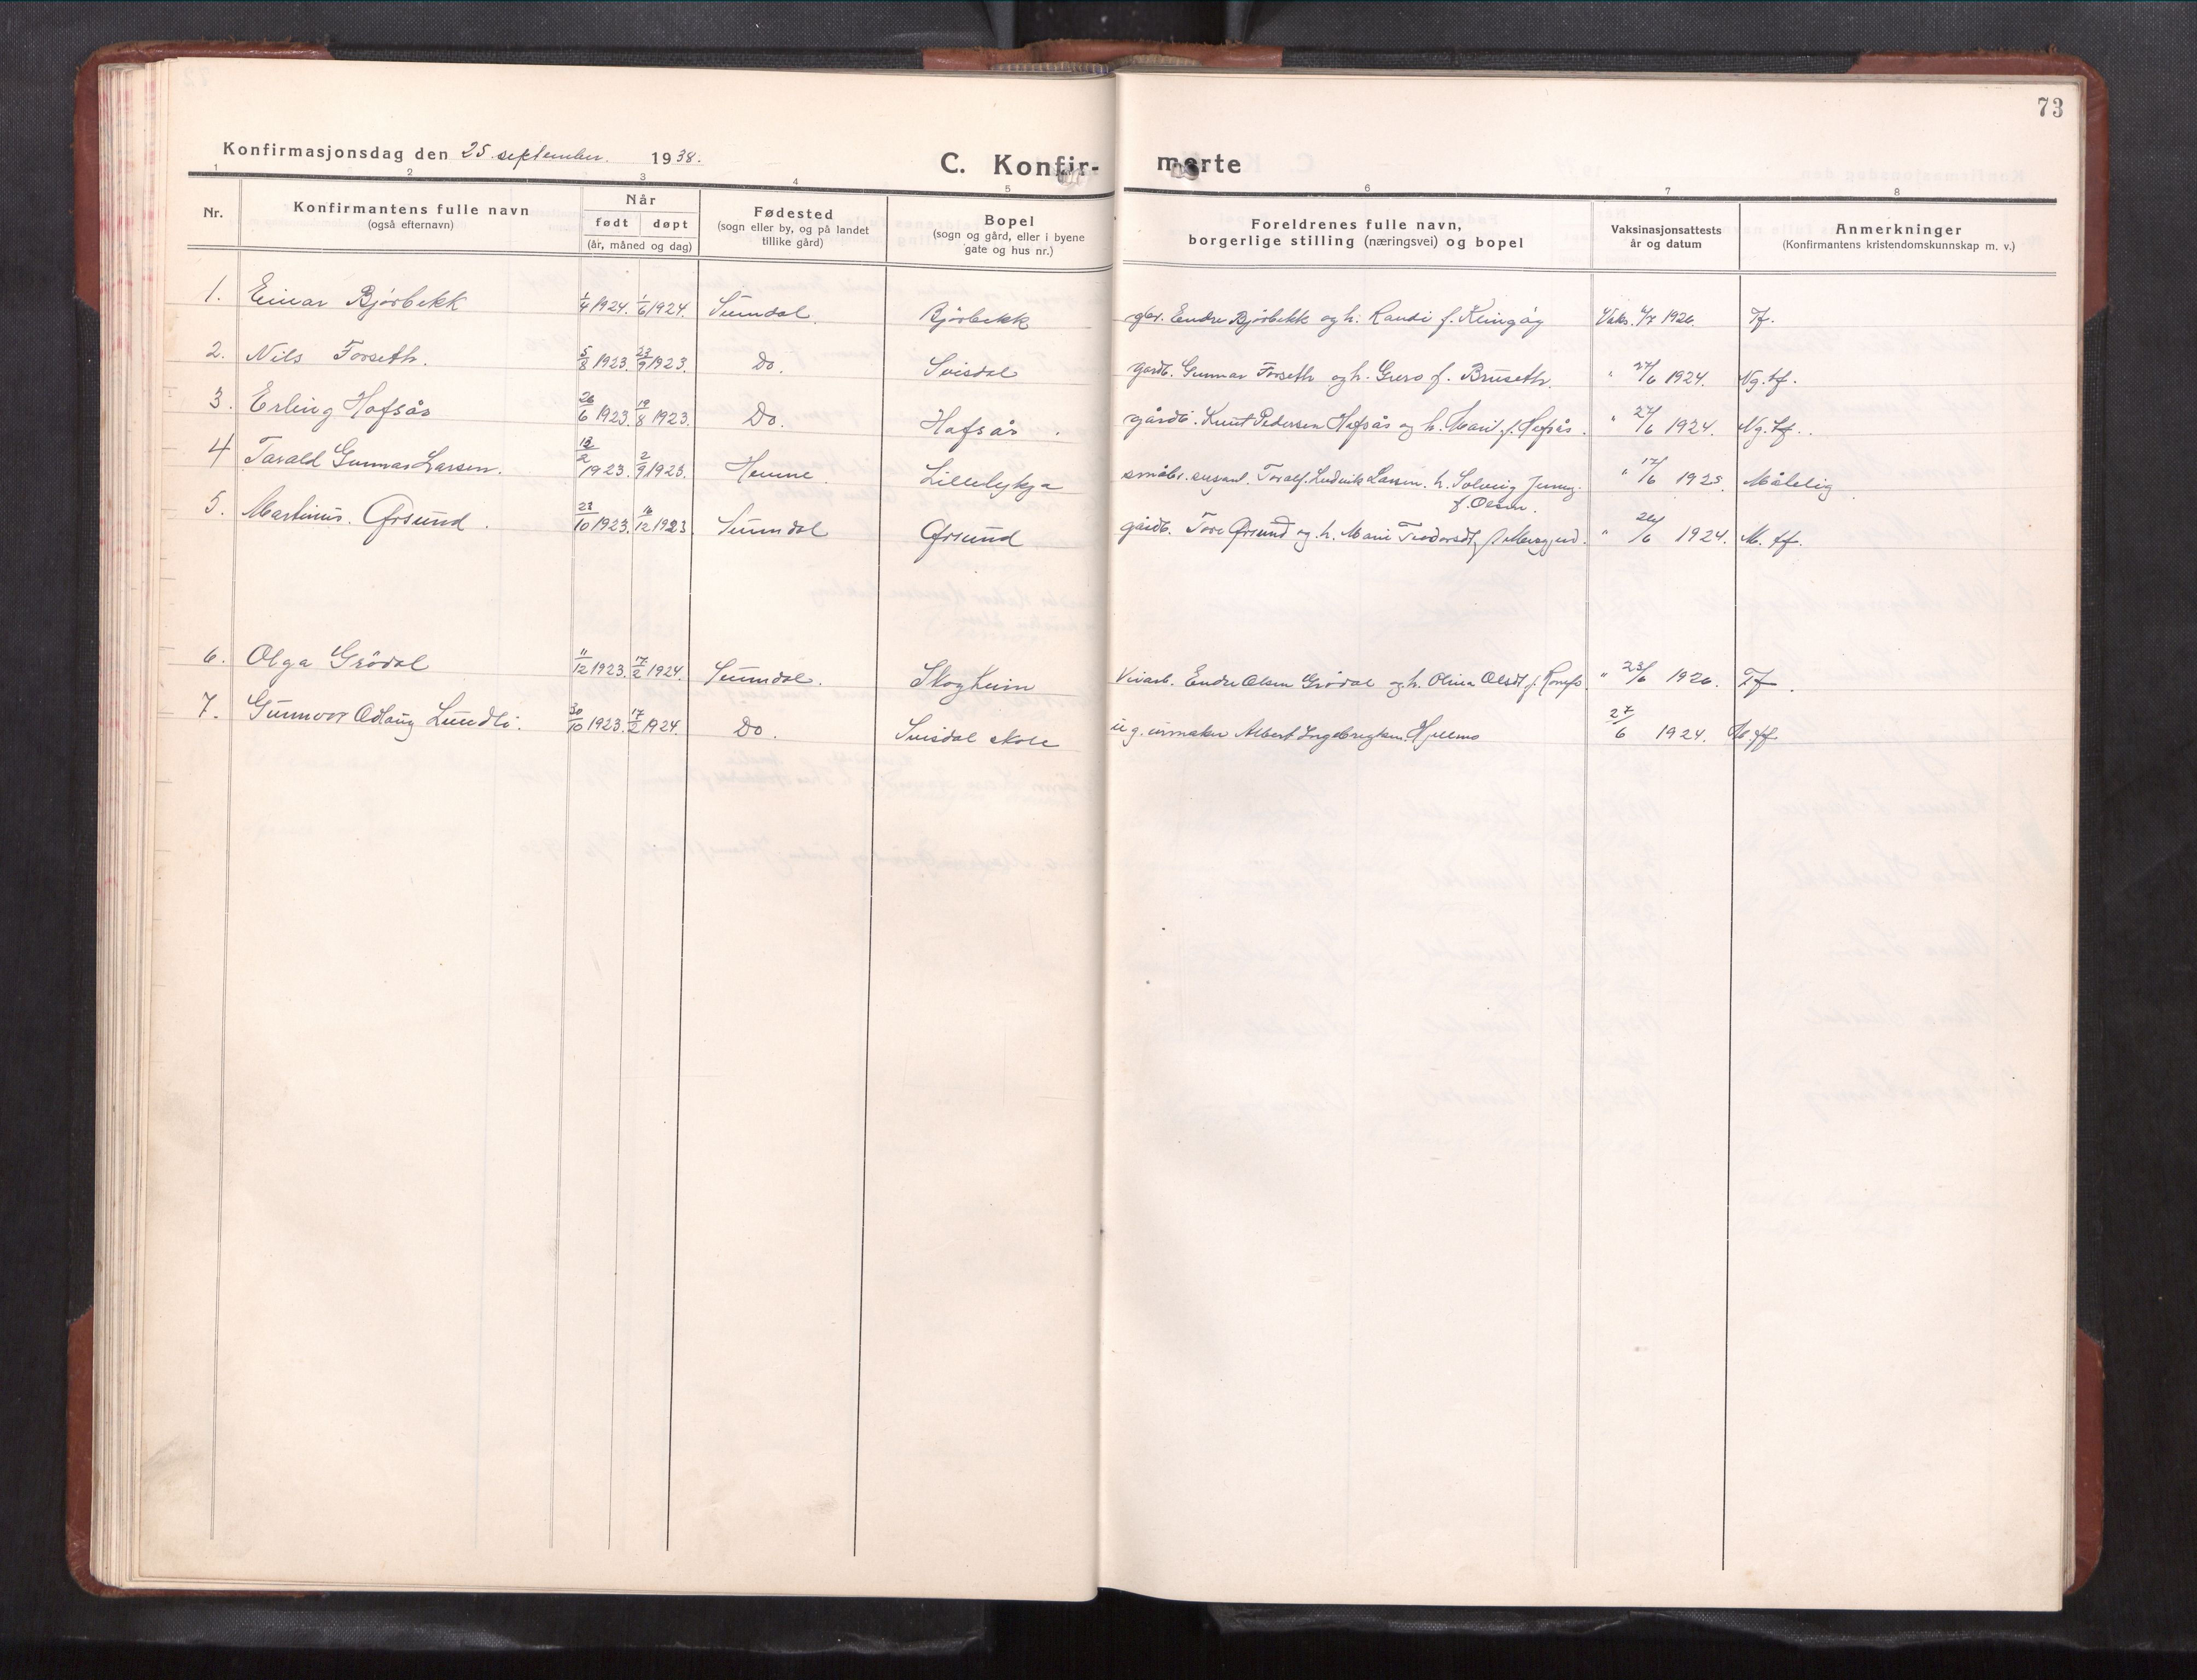 73
Konfirmasjonsdag den 25. september. 1938.
C. Konfir- merte
1 2 3 4 5 6 7 8
Nr.
Konfirmantens fulle navn
(også efternavn)
Når
født døpt
(år, måned og dag)
Fødested
(sogn eller by, og på landet
tillike gård)
Bopel
(sogn og gård, eller i byene
gate og hus nr.)
Foreldrenes fulle navn,
borgerlige stilling (næringsvei) og bopel
Vaksinasjonsattests
år og datum
Anmerkninger
(Konfirmantens kristendomskunnskap m. v.)
1. Einar Bjørbekk 1/4 1924. 1/6 1924. Sunndal. Bjørbekk gbr. Endre Bjørbekk og h. Randi f. Klingøy Vaks. 4/7 1926. Tf.
2. Nils Forseth. 5/8 1923. 23/9 1923. Do. Svisdal gardb. Gunnar Forseth og h. Guro f. Bruseth. " 27/6 1924. Ng. tf.
3. Erling Hafsås 26/6 1923. 19/8 1923. Do. Hafsås gårdb. Knut Pedersen Hafsås og h. Marit f. Hafsås. " 27/6 1924. Ng. tf.
4 Tarald Gunnar Larsen. 13/2 1923. 2/9 1923. Hemne. Lillelykja småbr. Toralf Ludvik Larsen. h. Solveig Jenny
f. Olsen. " 17/6 1925 Målelig
5. Martinus Ørsund. 23/10 1923. 16/12 1923 Sunndal Ørsund gårdb. Tore Ørsund og h. Marie Teodorsdt. " 26/6 1924. M. tf.
6. Olga Grödal 11/12 1923. 17/2 1924. Sunndal. Skogheim Veiarb. Endre Olsen Grödal og h. Olina Olsdt f. Romfo " 23/6 1926. Tf.
7. Gunnvor Odlaug Lundli. 30/10 1923. 17/2 1924. Do. Svisdal skole u. g. urmaker Albert Ingebrigtsen Hjellmo 27/6 1924. M. tf.